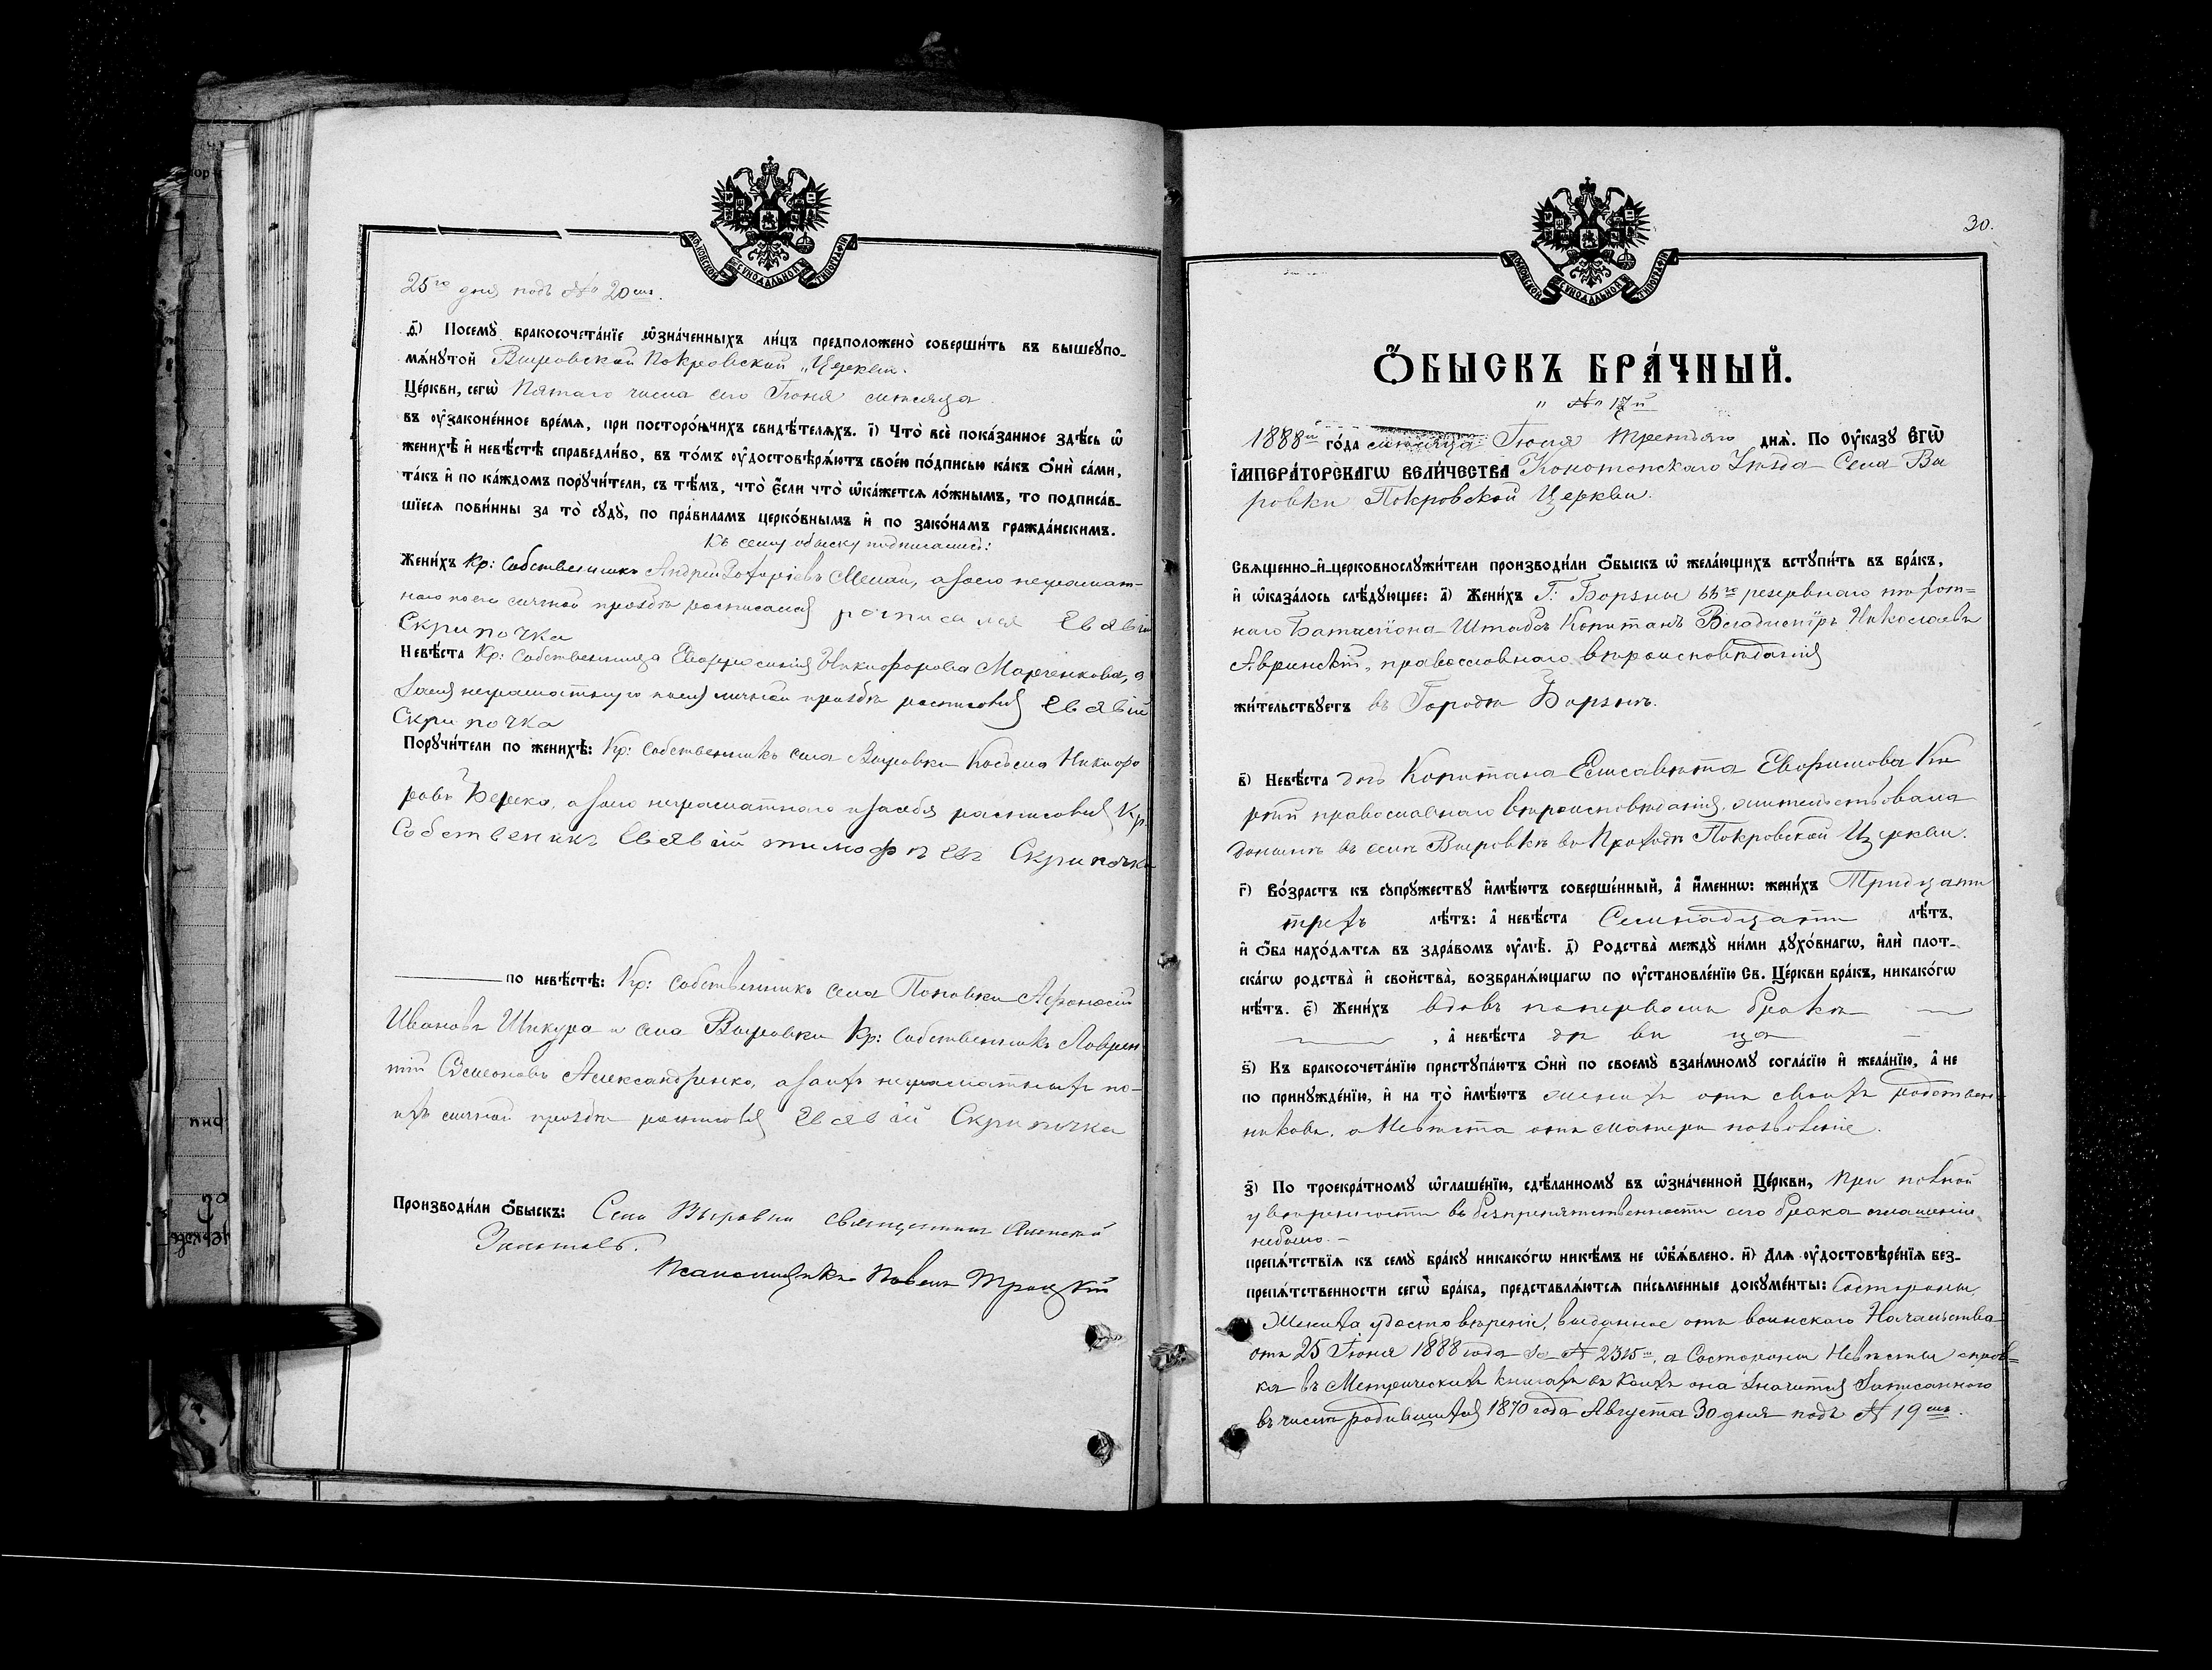 МОСКОВСКОЙ СѴНОДАЛЬНОЙ ТИПОГРАФІИ
25го дня подъ № 20мъ.
д҃) Посемꙋ̀ бракосочета́нїе ѡ҆зна́ченныхъ ли́цъ предположено̀ соверши́ть въ вышеꙋпо-
мѧ́нꙋтой Выровской Покровской „Церкви.
Це́ркви, сегѡ̀ Пятаго числа сего Іюня мѣсяца
въ ᲂу҆законе́нное вре́мѧ, при посторо́ннихъ свидѣ́телѧхъ. і҃) Что̀ всѐ пока́занное здѣ́сь ѡ҆
женихѣ̀ и҆ невѣ́стѣ справедли́во, въ то́мъ ᲂу҆достовѣрѧ́ютъ свое́ю по́дписью ка́къ ѻ҆нѝ са́ми,
та́къ и҆ по ка́ждомъ порꙋчи́тели, съ тѣ́мъ, что̀ є҆́сли что̀ ѡ҆ка́жетсѧ ло́жнымъ, то подписа́в-
шїесѧ пови́нны за то̀ сꙋдꙋ̀, по пра́виламъ церко́внымъ и҆ по зако́намъ гражда́нскимъ.
Къ сему обыску подписались:
Жени́хъ Кр: Собственникъ Андрей Захаріевъ а за его неграмот-
наго по его личной прозбѣ росписался росписался Евявій
Скрипочка
Невѣ́ста Кр: Собственница Евфросинія Никифорова Марченкова, а
за ея неграмотную по ея личной прозбѣ росписовся Евявій
Скрипочка
Порꙋчи́тели по женихѣ̀: Кр: Собственникъ села Выровки Косьма Никифо
ровъ а за его неграмотнаго и за себя росписовся Кр:
Собственикъ Евявій тимофѣевъ Скрипочка
по невѣ́стѣ: Кр: Собственникъ села Поповки Афонасій
Ивановъ Шкура и села Выровки Кр: Собственникъ Лаврен
тій Семеоновъ Александренко, а за ихъ неграмотныхъ по-
ихъ личной прозбѣ росписовся Евявій Скрипочка
Производи́ли ѻ҆́быскъ: Села Выровки священникъ
Псаломщикъ Павелъ Троцкій
30.
МОСКОВСКОЙ СѴНОДАЛЬНОЙ ТИПОГРАФІИ
Ѻ҆́БЫСКЪ БРА́ЧНЫЙ.
„ № 17й
1888й го́да мѣсяца Іюля Третяго днѧ̀. По ᲂу҆ка́зꙋ Є҆ГѠ̀
І҆МПЕРА́ТОРСКАГѠ ВЕЛИ́ЧЕСТВА Конотопскаго Уѣзда Села Вы
ровки Покровской Церкви.
Свѧще́нно-и҆-церковнослꙋжи́тели производи́ли ѻ҆́быскъ ѡ҆ жела́ющихъ встꙋпи́ть въ бра́къ,
и҆ ѡ҆каза́лось слѣ́дꙋющее: а҃) Жени́хъ Г. Борзны 66го резервнаго пѣхот=
наго Баталіона Штабсъ Капитанъ Владиміръ Николаевъ
Авринскій, православнаго вѣроисповѣданія
жи́тельствꙋетъ въ Городѣ Борзнѣ.
в҃) Невѣ́ста дочь Капитана Елисавѣта Евфимова
православнаго вѣроисповѣданія, жительствовала
донынѣ въ селѣ Выровкѣ въ Приходѣ Покровской Церкви.
г҃) Во́зрастъ къ сꙋпрꙋ́жествꙋ и҆мѣ́ютъ соверше́нный, а҆ и҆́меннѡ: жени́хъ Тридцати
трехъ лѣ́тъ: а҆ невѣ́ста Семнадцати лѣ́тъ,
и҆ ѻ҆́ба нахо́дѧтсѧ въ здра́вомъ ᲂу҆мѣ̀. д҃) Родства̀ междꙋ̀ ни́ми дꙋхо́внагѡ, и҆лѝ плот-
ска́гѡ родства̀ и҆ сво́йства̀, возбранѧ́ющагѡ по ᲂу҆становле́нїю Св. Це́ркви бра́къ, никако́гѡ
нѣ́тъ. є҃) Жени́хъ вдовъ по первомъ бракѣ
, а҆ невѣ́ста дѣ ви ца
ѕ҃) Къ бракосочета́нїю пристꙋпа́ютъ ѻ҆нѝ по своемꙋ̀ взаи́мномꙋ согла́сїю и҆ жела́нїю, а҆ не
по принꙋжде́нїю, и҆ на то̀ и҆мѣ́ютъ женихъ отъ своихъ родствен-
никовъ, а Невѣста отъ матери позволеніе.
з҃) По троекра́тномꙋ ѡ҆глаше́нїю, сдѣ́ланномꙋ въ ѡ҆зна́ченной Це́ркви, при полной
увѣренности въ безпрепятственности сего брака оглашенія
небыло. –
препѧ́тствїѧ къ семꙋ̀ бра́кꙋ никако́гѡ никѣ́мъ не ѡ҆б̾ѧ́влено. и҃) Длѧ̀ ᲂу҆достовѣре́нїѧ без-
препѧ́тственности сегѡ̀ бра́ка, представлѧ́ютсѧ пи́сьменные докꙋме́нты: Состороны
Жениха удостовѣреніе, выданное отъ воинскаго Начальства
отъ 25 Іюня 1888 года за № 2315м, а Состороны Невѣсты справ=
ка въ Метрическихъ книгахъ въ коихъ она значится Записанного
въ числѣ родившихся 1870 года Августа 30 дня подъ № 19мъ.